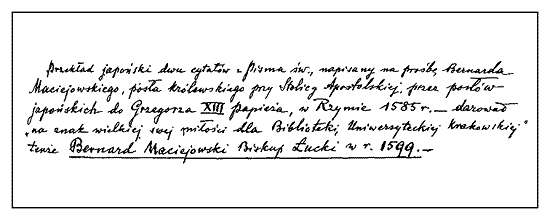 Przekład japoński dwu cytatów z Pisma św., napisany na prośbę Bernarda
Maciejowskiego, posła królewskiego przy Stolicy Apostolskiej, przez posłów
japońskich do Grzegorza XIII papieża, w Rzymie 1585 r. — darował
„na znak wielkiej swej miłości dla Biblioteki Uniwersyteckiej Krakowskiej"
tenże Bernard Maciejowski Biskup Łucki w r. 1599. —